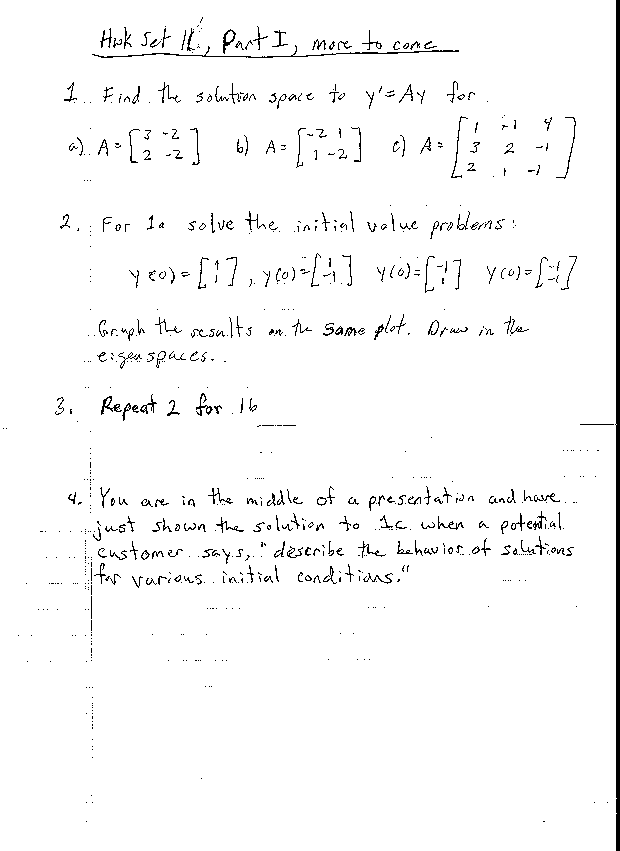 Hwk Set 11, Part I, more to come
1. Find the solution space to y' = Ay for
a) A = [3 -2; 2 -2] b) A = [-2 1; 1 -2] c) A = [1 -1 4; 3 2 -1; 2 1 -1]
2. For 1a solve the initial value problems:
y(0) = [1; 1], y(0) = [1; -1] y(0) = [-1; 1] y(0) = [-1; -1]
Graph the results on the same plot. Draw in the
eigenspaces.
3. Repeat 2 for 1b
4. You are in the middle of a presentation and have
just shown the solution to 1c when a potential
customer says, "describe the behavior of solutions
for various initial conditions."